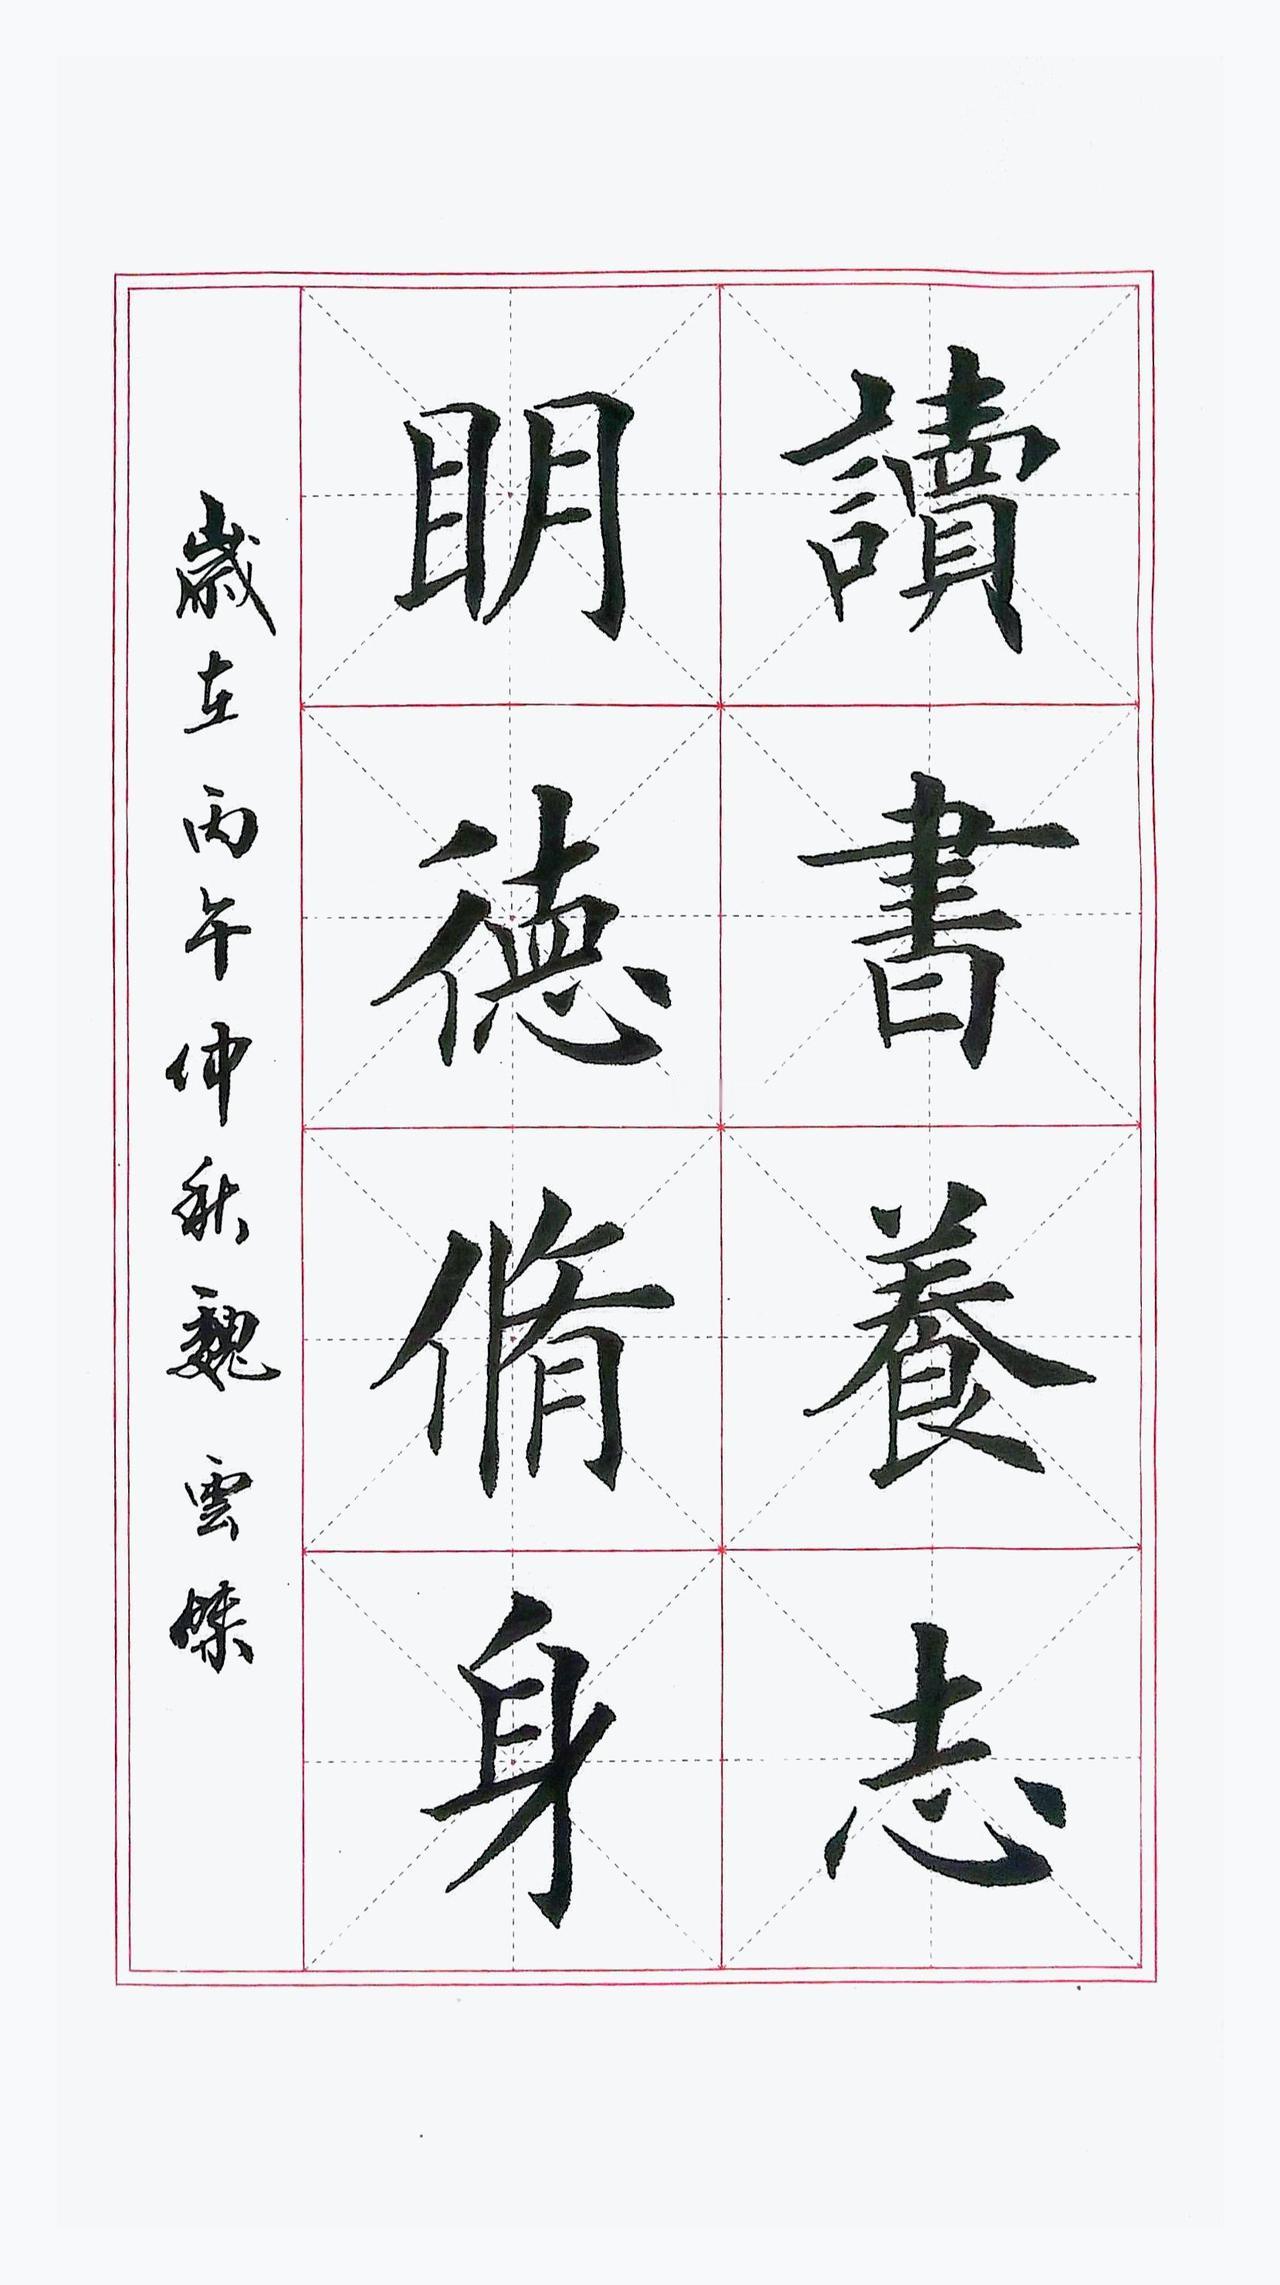 讀書養志
明德脩身
歲在丙午仲秋魏雲傑